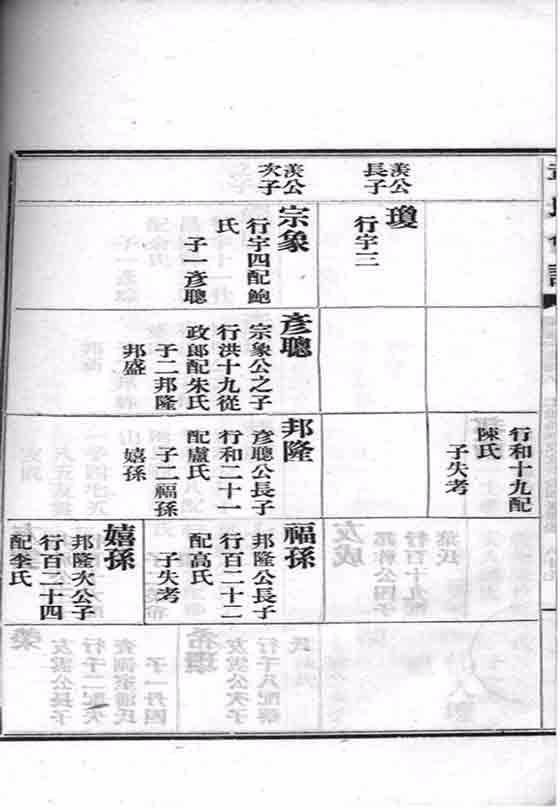 行和十九配
陳氏
子失考
羨公
長子
瓊
行宇三
羨公
次子
宗象
行宇四配鮑
氏
子一彥聰
彥聰
宗象公之子
行洪十九從
政郎配朱氏
子二邦隆
邦盛
邦隆
彥聰公長子
行和二十一
配盧氏
子二福孫
嬉孫
福孫
邦隆公長子
行百二十二
配高氏
子失考
嬉孫
邦隆次公子
行百二十四
配李氏